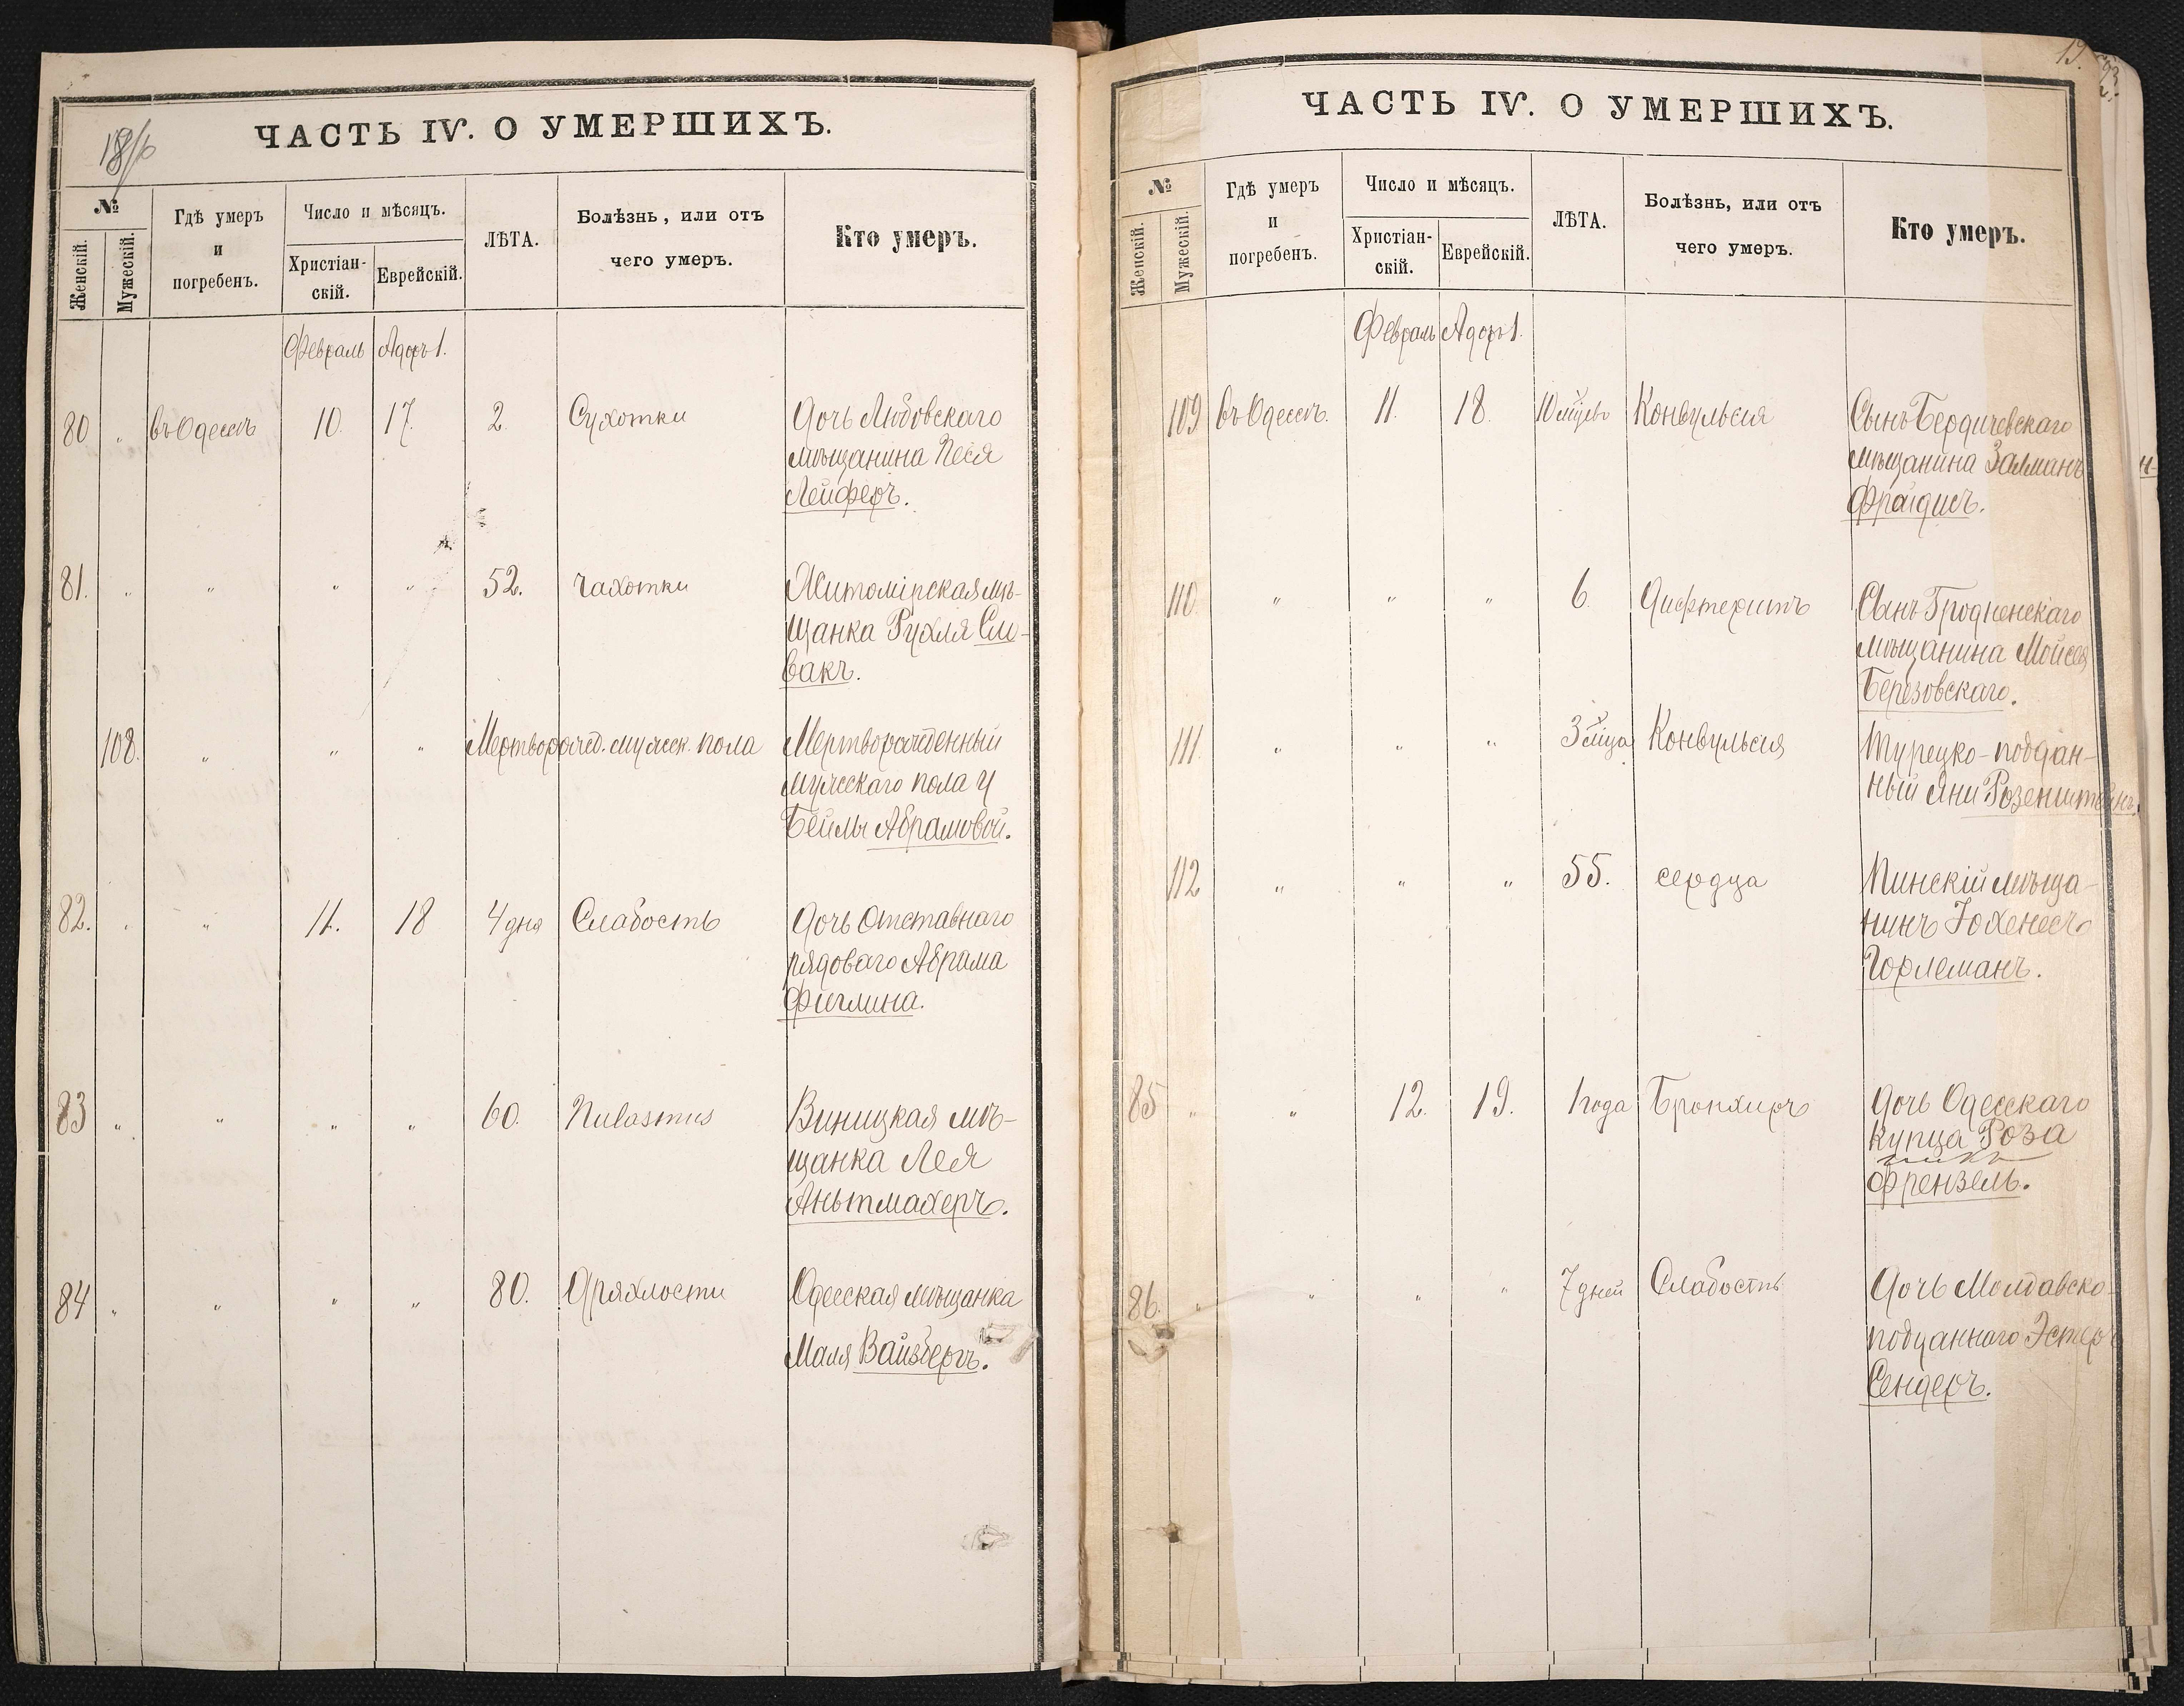 ЧАСТЬ IV. О УМЕРШИХЪ.
№
Женскій.
Мужескій.
Гдѣ умеръ
и
погребенъ.
Число и мѣсяцъ.
Христіан-
скій.
Еврейскій.
ЛѢТА.
Болѣзнь, или отъ
чего умеръ.
Кто умеръ.
Февраль Адоръ 1.
80 " въ Одессѣ 10. 17. 2. Сухотки Дочь Любовскаго
мѣщанина Песя
Лейферъ.
81. " " " " 52. Чахотки Житомірская мѣ-
щанка Рухля Си-
вакъ.
108. " " " Мертворожд. мужеск. пола Мертворожденный
мужескаго пола у
Бейлы Абрамовой.
82. " " 11. 18 4 дня Слабость Дочь Отставнаго
рядоваго Абрама
Фиглина.
83 " " " " 60. Виницкая мѣ-
щанка Лея
Аньтмахеръ.
84 " " " " 80. Дряхлости Одесская мѣщанка
Маля Вайзберъ.
19.
ЧАСТЬ IV. О УМЕРШИХЪ.
№
Женскій.
Мужескій.
Гдѣ умеръ
и
погребенъ.
Число и мѣсяцъ.
Христіан-
скій.
Еврейскій.
ЛѢТА.
Болѣзнь, или отъ
чего умеръ.
Кто умеръ.
Февраль Адоръ 1.
109 въ Одессѣ. 11. 18. 10 Конвульсія Сынъ Бердичевскаго
мѣщанина Залманъ
Фрайдисъ.
110. " " " 6. Дифтеритъ Сынъ Гродненскаго
мѣщанина Мойсея
Березовскаго.
111. " " " 3 Конвульсія Турецко-поддан-
ный Яни Розенштейнъ.
112 " " " 55. сердца Пинскій мѣща-
нинъ Іохенесъ
Горлеманъ.
85 " " 12. 19. 1 года Бронхитъ Дочь Одесскаго
купца Роза
Френзель.
86. " " " " 7 дней Слабость Дочь Молдавско-
подданнаго Эстеръ
Сендеръ.